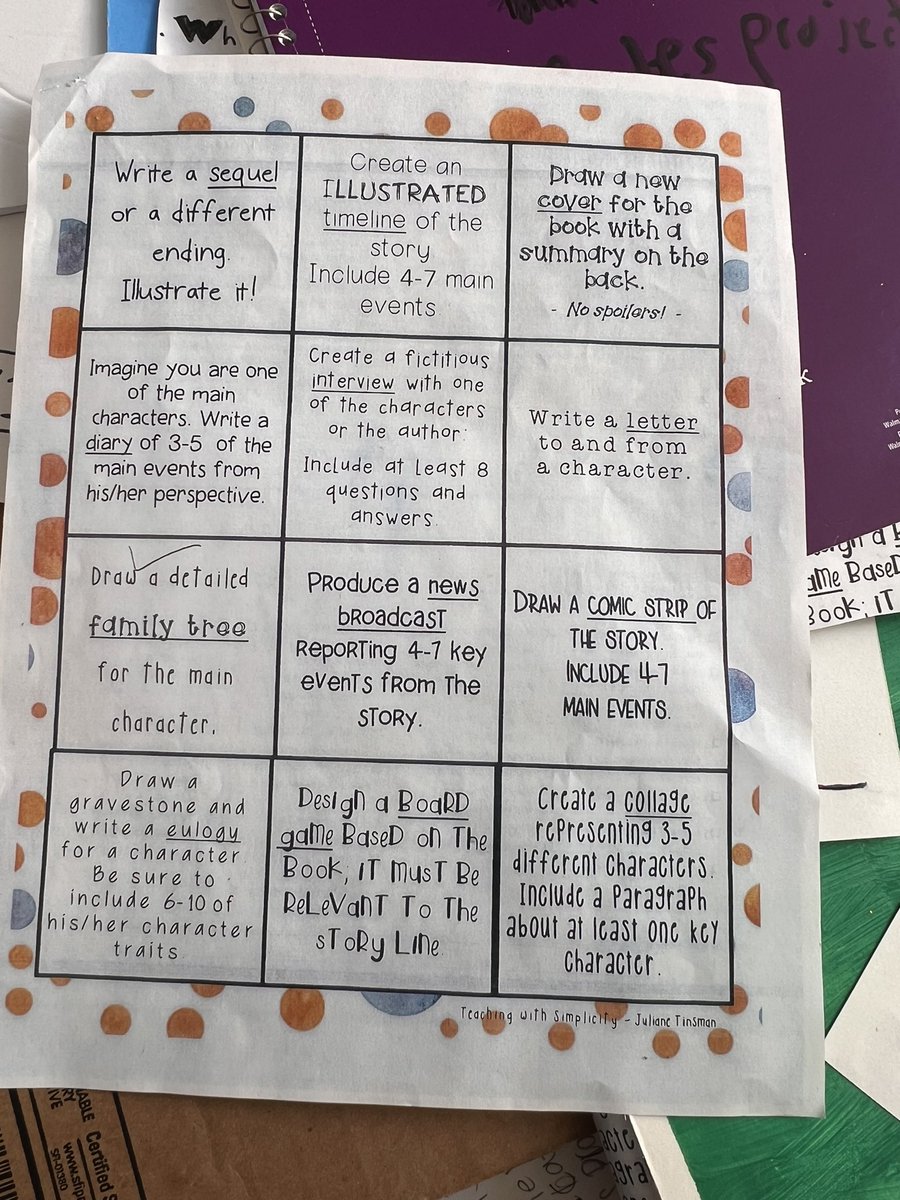 Wh
les project
Write a sequel
or a different
ending.
Illustrate it!
Create an
ILLUSTRATED
timeline of the
story
Include 4-7 main
events
Draw a new
cover for the
book with a
summary on the
back.
- No spoilers! -
Imagine you are one
of the main
characters. Write a
diary of 3-5 of the
main events from
his/her perspective.
Create a fictitious
interview with one
of the characters
or the author:
Include at least 8
questions and
answers.
Write a letter
to and from
a character.
Draw a detailed
family tree
for the main
character.
Produce a news
broadcast
reporting 4-7 key
events from the
story.
DRAW A COMIC STRIP OF
THE STORY.
INCLUDE 4-7
MAIN EVENTS.
Draw a
gravestone and
write a eulogy
for a character.
Be sure to
include 6-10 of
his/her character
traits.
Design a Board
game Based on The
Book; iT MusT Be
ReLeVanT To The
sToRy Line.
Create a collage
representing 3-5
different characters.
Include a Paragraph
about at least one key
character.
Teaching with Simplicity - Juliane Tinsman
ame BaseD
Book; iT
Certified
www.sfip
SFI-01380